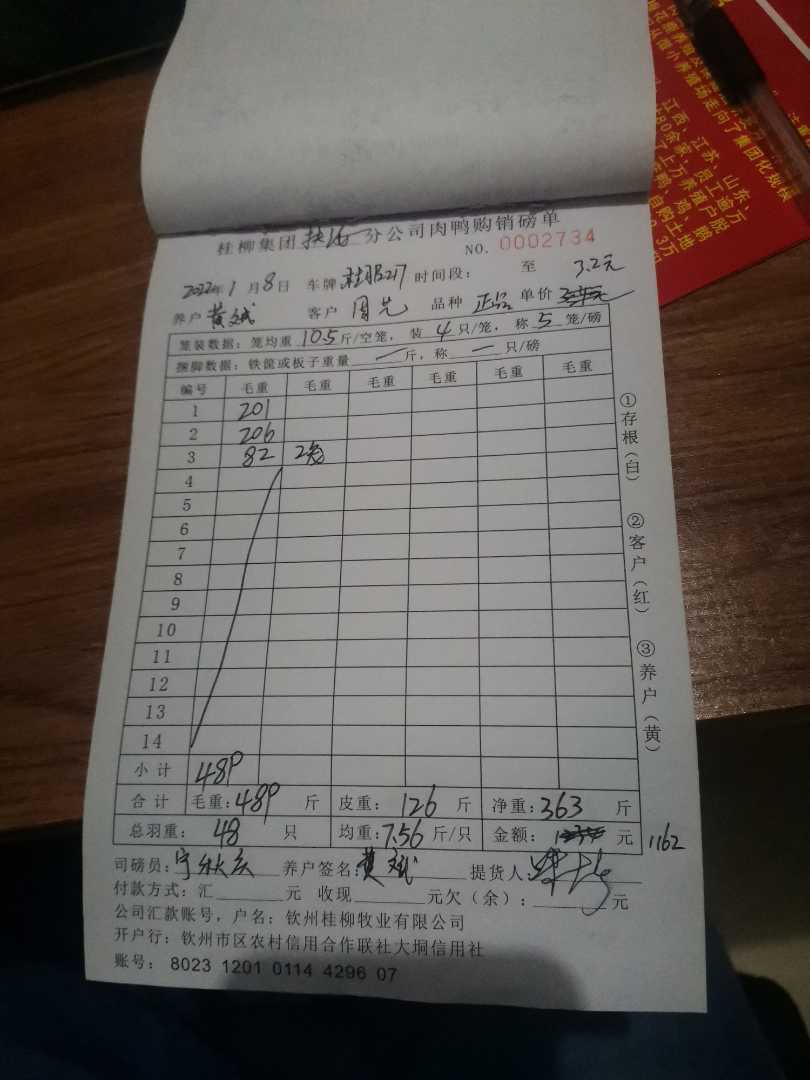 桂柳集团 分公司肉鸭购销磅单
NO. 0002734
2022年1月8日 车牌 桂 时间段: 至 3.2元
养户 黄斌 客户 周 品种 正品 单价
笼装数据: 笼均重 10.5 斤/空笼, 装 4 只/笼, 称 5 笼/磅
捆脚数据: 铁筐或板子重量 一 斤, 称 一 只/磅
编号 毛重 毛重 毛重 毛重 毛重 毛重
1 201
2 206
3 82 2笼
4
5
6
7
8
9
10
11
12
13
14
小计 489
合计 毛重: 489 斤 皮重: 126 斤 净重: 363 斤
总羽重: 48 只 均重: 7.56 斤/只 金额: 元 1162
司磅员: 养户签名: 黄斌 提货人:
付款方式: 汇 元 收现 元欠(余): 元
公司汇款账号, 户名: 钦州桂柳牧业有限公司
开户行: 钦州市区农村信用合作联社大垌信用社
账号: 8023 1201 0114 4296 07
①存根(白)
②客户(红)
③养户(黄)
江西、江苏、山东、